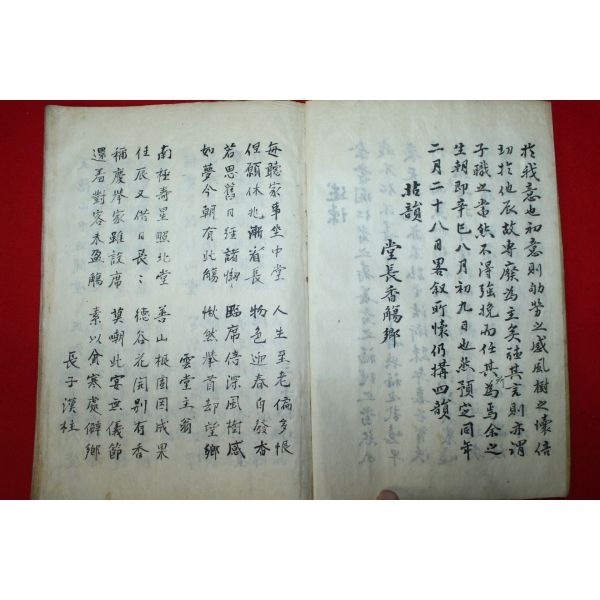 於我意也初意則劬勞之感風樹之懷倍
切於他辰故專廢為主矣雖其言則亦謂
子職之當然不得強挽而任其所為焉余之
生朝即辛巳八月初九日也然預定同年
二月二十八日畧叙所懷仍搆四韻
韻 堂長香觴鄉
每聽家事坐中堂 人生至老偏多恨
但願休兆漸省長 物色迎春自發香
若思舊日經諸 臨席倍深風樹感
如夢今朝有此觴 愀然擧首却望鄉
雲堂主翁
南極壽星照北堂 善山根固因成果
佳辰又借日長〻 德谷花開別有香
稱慶擧家雖設席 莫嘲此宴無儀節
還羞對客未盈觴 素以貧寒處僻鄉
長子漢柱